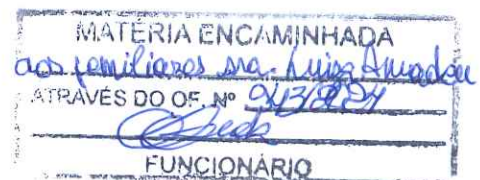 MATÉRIA ENCAMINHADA
aos familiares sra. Luiza Amadeu
ATRAVÉS DO OF. Nº 943/2024
FUNCIONÁRIO